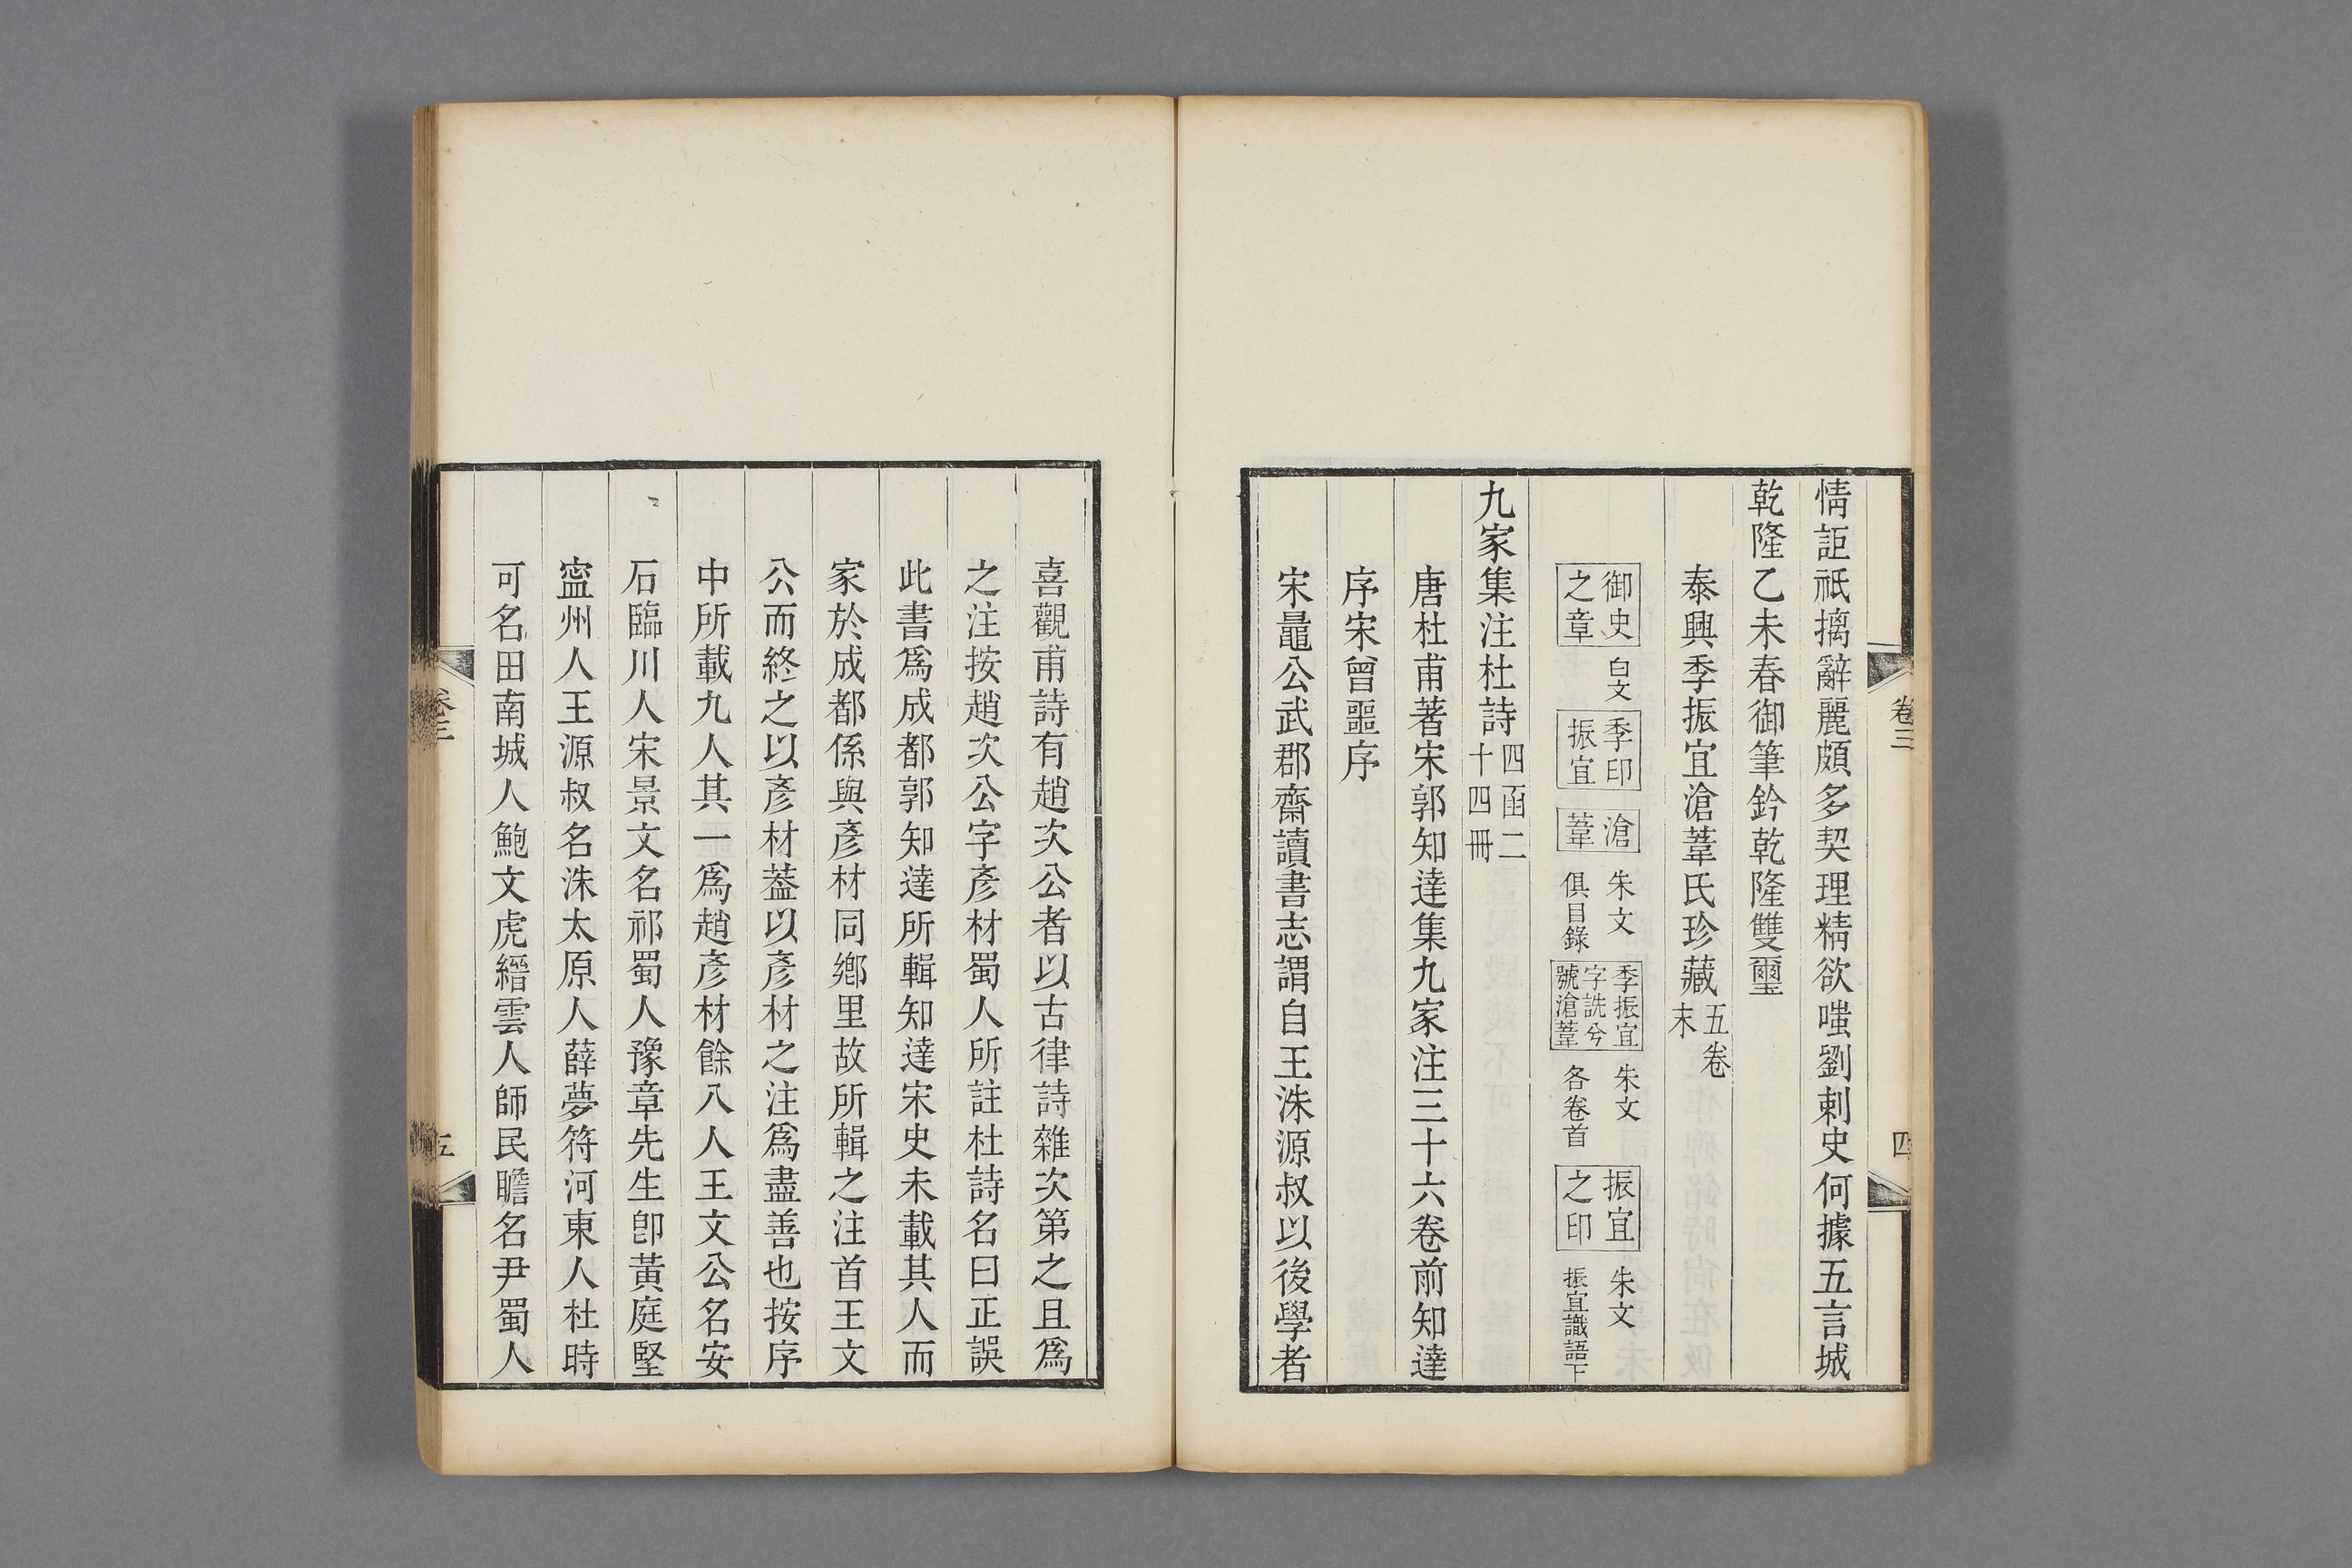 情詎祇摛辭麗頗多契理精欲嗤劉刺史何據五言城
乾隆乙未春御筆鈐乾隆雙璽
泰興季振宜滄葦氏珍藏五卷末
御史之章白文季印振宜滄葦朱文俱目錄季振宜字詵兮號滄葦朱文各卷首振宜之印朱文振宜識語下
九家集注杜詩四函二十四冊
唐杜甫著宋郭知達集九家注三十六卷前知達
序宋曾噩序
宋鼂公武郡齋讀書志謂自王洙源叔以後學者
卷三
四
喜觀甫詩有趙次公者以古律詩雜次第之且爲
之注按趙次公字彥材蜀人所註杜詩名曰正誤
此書爲成都郭知達所輯知達宋史未載其人而
家於成都係與彥材同鄉里故所輯之注首王文
公而終之以彥材葢以彥材之注爲盡善也按序
中所載九人其一爲趙彥材餘八人王文公名安
石臨川人宋景文名祁蜀人豫章先生卽黃庭堅
寍州人王源叔名洙太原人薛夢符河東人杜時
可名田南城人鮑文虎縉雲人師民瞻名尹蜀人
卷三
五